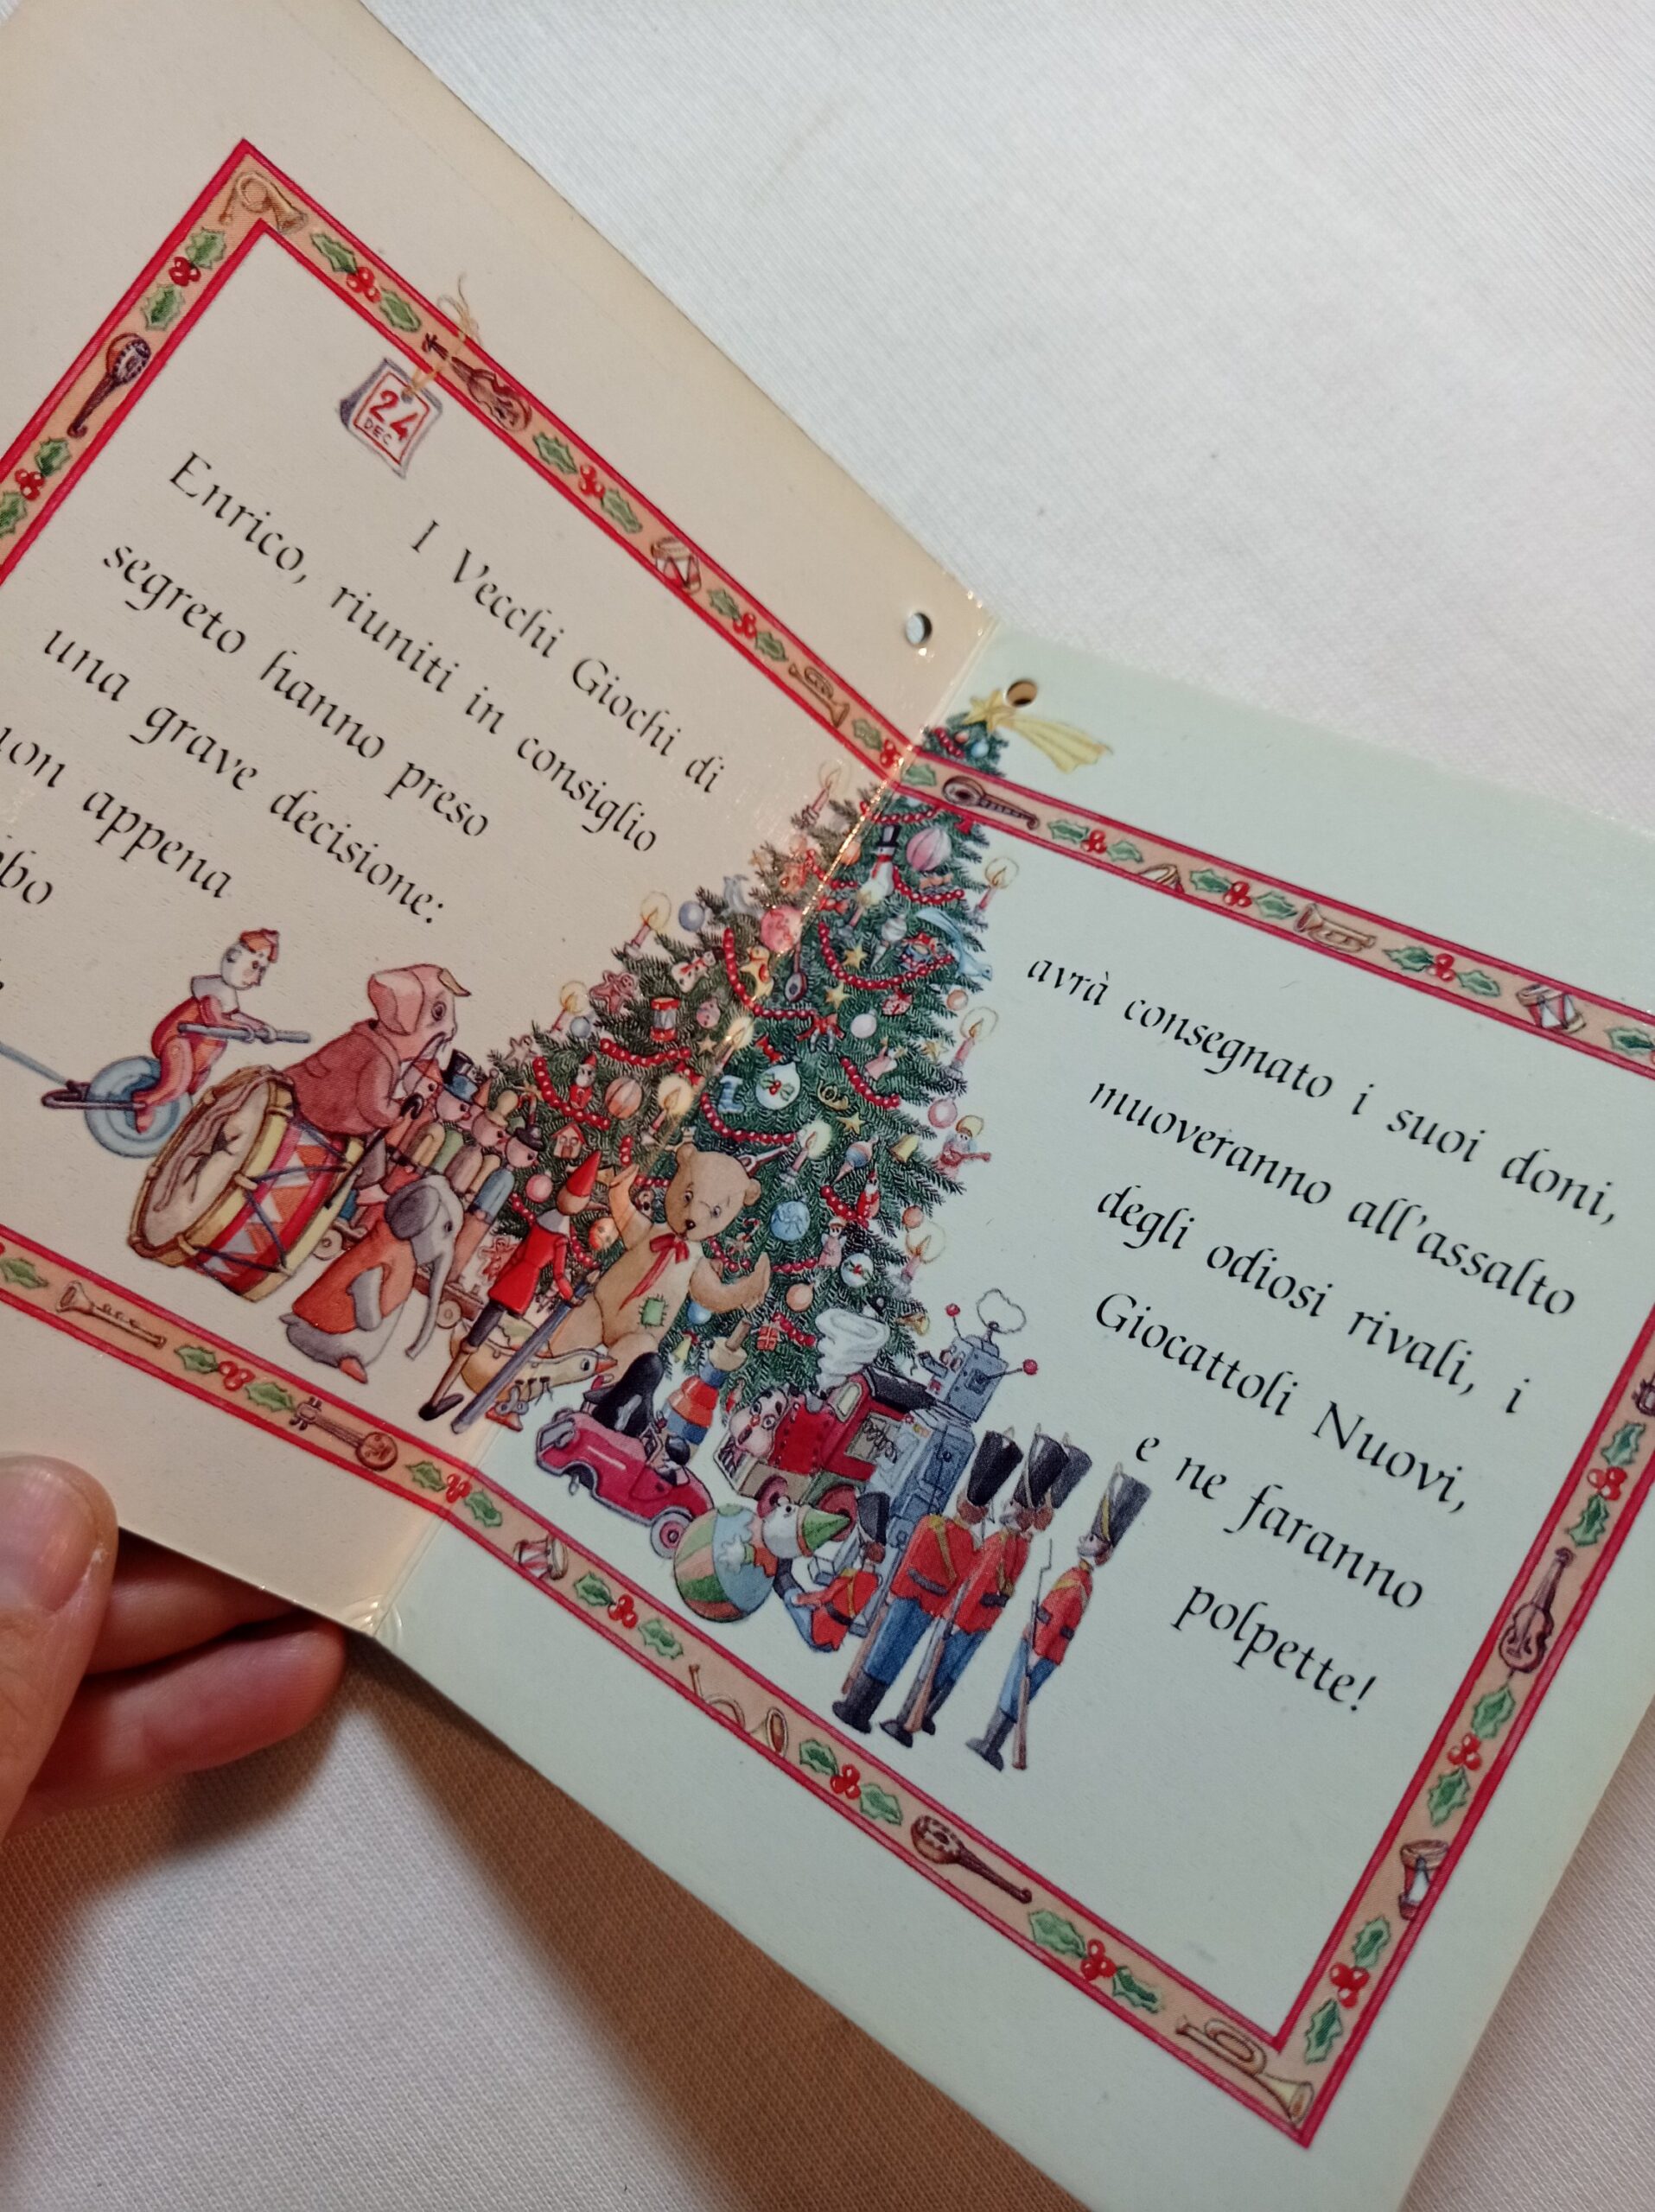 24
DEC
I Vecchi Giochi di
Enrico, riuniti in consiglio
segreto hanno preso
una grave decisione:
appena
avrà consegnato i suoi doni,
muoveranno all'assalto
degli odiosi rivali, i
Giocattoli Nuovi,
e ne faranno
polpette!